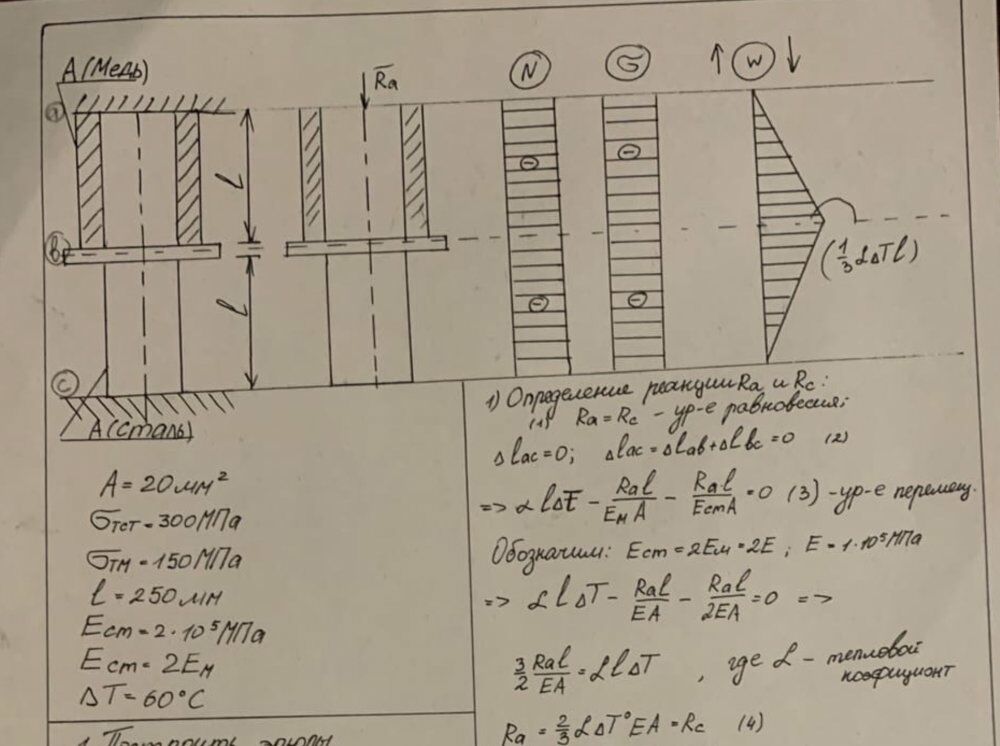 A (Медь)
R̅a
N
σ
↑ W ↓
a
l
b
(1/3 αΔTl)
l
c
A (Сталь)
A = 20 мм²
σтст = 300 МПа
σтм = 150 МПа
l = 250 мм
Eст = 2·10⁵ МПа
Eст = 2Eм
ΔT = 60°C
1) Определение реакции Ra и Rc:
(1) Ra = Rc - ур-е равновесия;
Δlac = 0; Δlac = Δlab + Δlbc = 0 (2)
=> αlΔt̅ - Ral/EмA - Ral/EстA = 0 (3) - ур-е перемещ.
Обозначим: Eст = 2Eм = 2E ; E = 1·10⁵ МПа
=> αlΔT - Ral/EA - Ral/2EA = 0 =>
3/2 Ral/EA = αlΔT , где α - тепловой
коэфициент
Ra = 2/3 αΔT°EA = Rc (4)
1. Построить эпюры